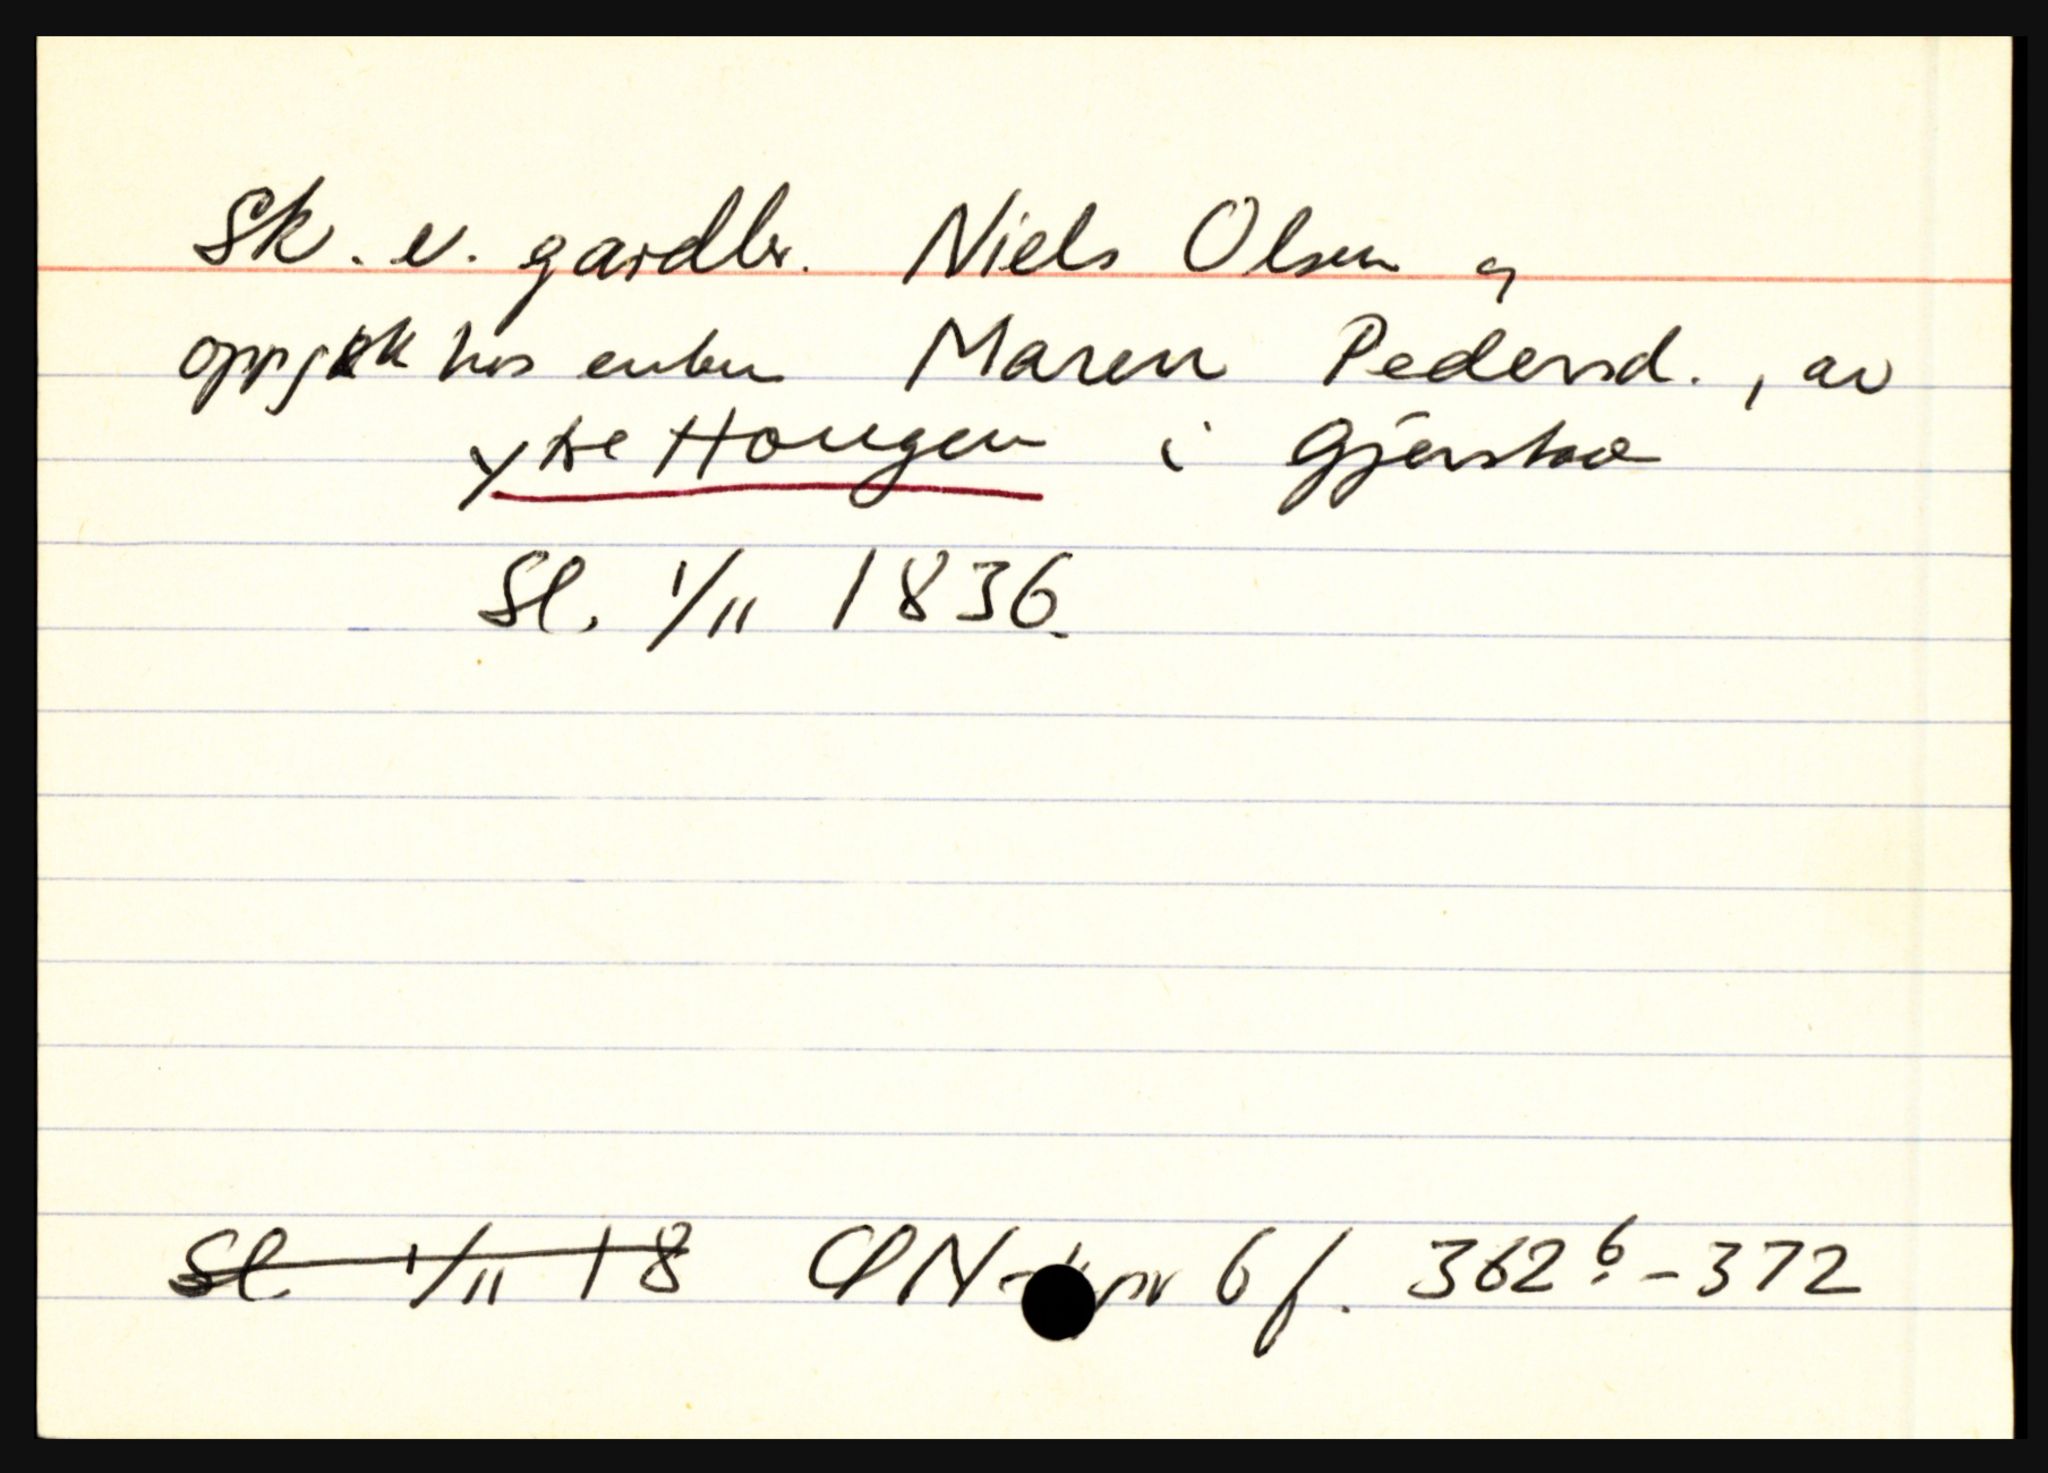 Sk. e. gardbr. Niels Olsen og
hos enken Maren Pedersd., av
Ytre Hougen i Gjerstad
Sl. 1/11 1836.
Sl 1/11 18 nr 6 f. 362 b. - 372